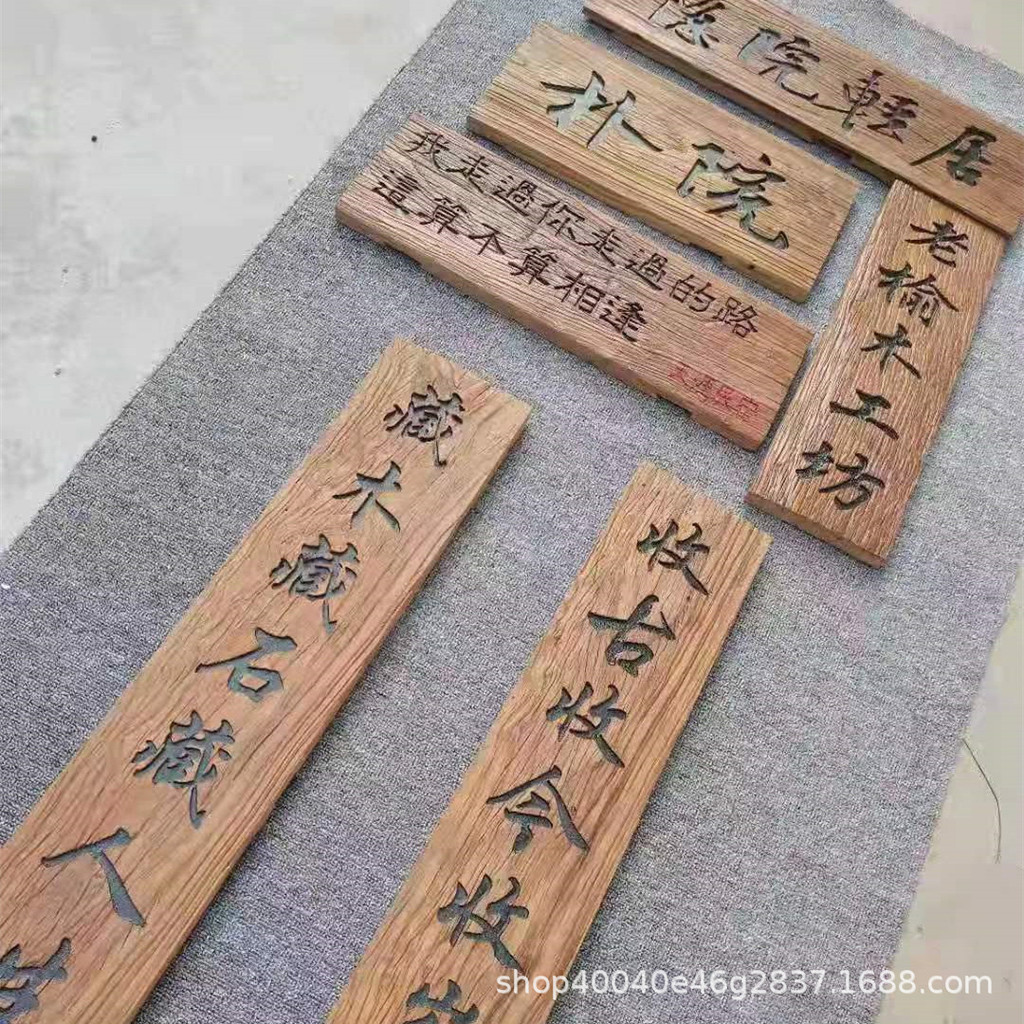 院輕居
朴院
我走過你走過的路
這算不算相逢
老榆木工坊
藏木藏石藏人
收古收今收
shop40040e46g2837.1688.com